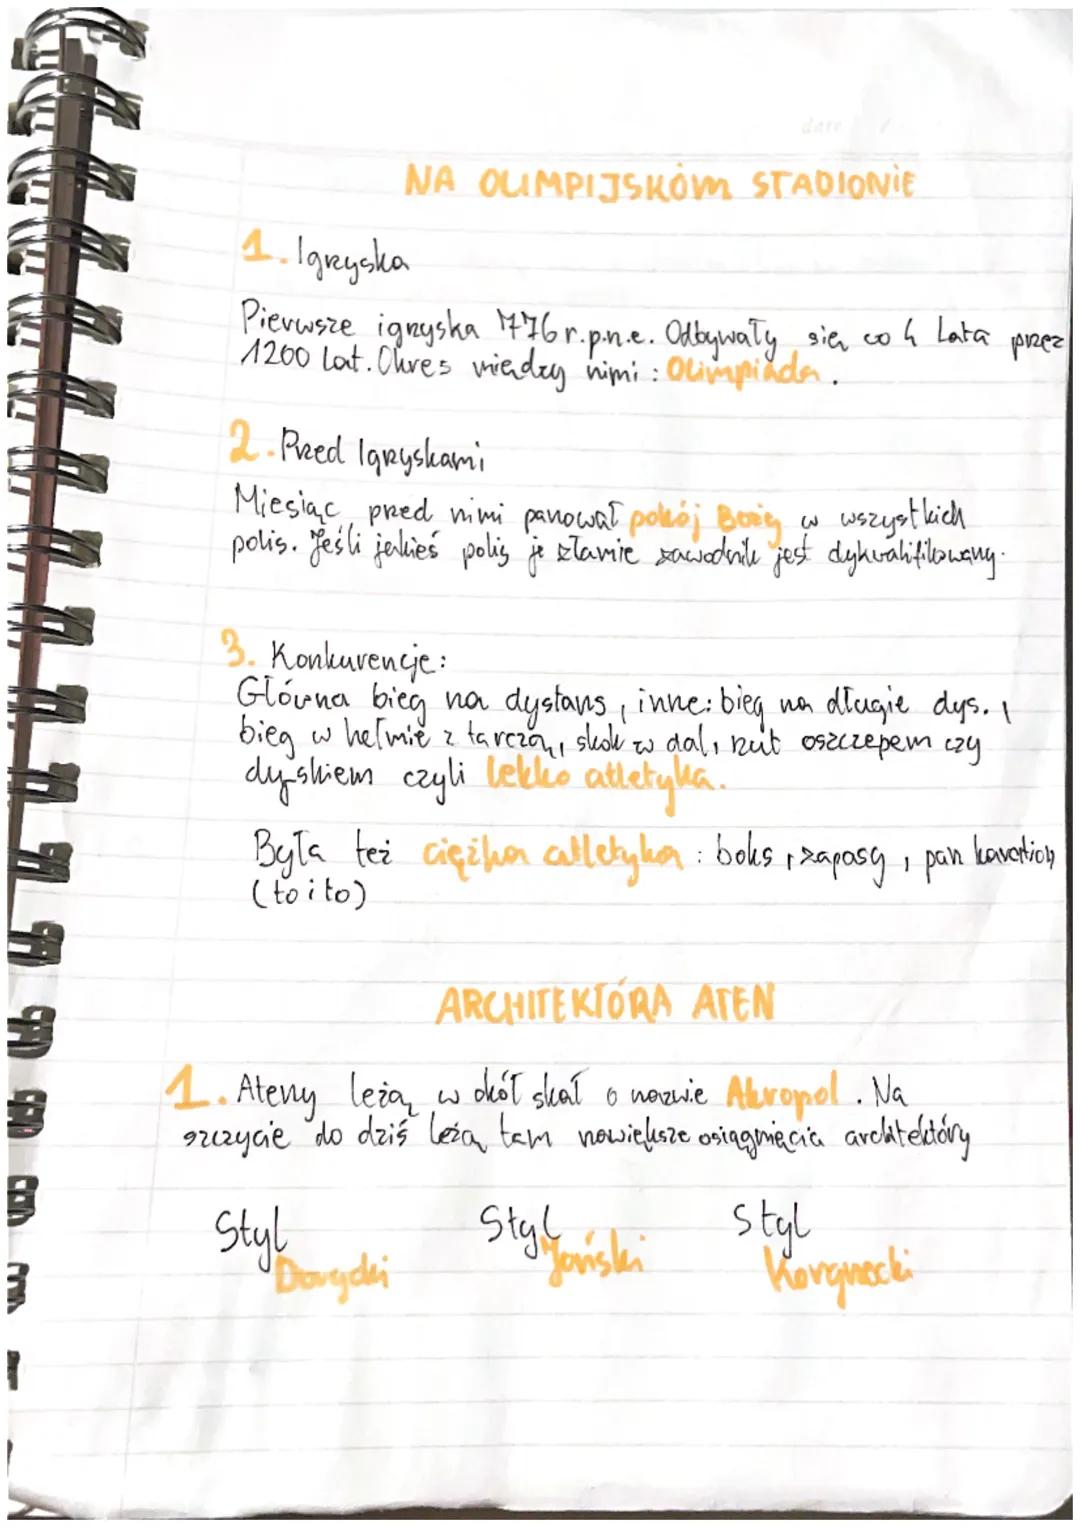 date
NA OLIMPIJSKÓM STADIONIE
1. Igryska
Pierwsze igryska 776 r.p.n.e. Odbywały się co 4 lata przez
1200 lat. Okres między nimi: Olimpiada.
2. Przed Igryskami
Miesiąc przed nimi panował pokój Boży w wszystkich
polis. Jeśli jakieś polis je złamie zawodnik jest dykwalifikowany.
3. Konkurencje:
Główna bieg na dystans, inne: bieg na długie dys.,
bieg w hełmie z tarczą, skok w dal, rzut oszczepem czy
dyskiem czyli lekko atletyka.
Była też ciężka atletyka: boks, zapasy, pan
(to i to)
ARCHITEKTÓRA ATEN
1. Ateny leżą w okół skał o nazwie Akropol. Na
szczycie do dziś leżą tam nowiększe osiągnięcia architektóry
Styl Styl Styl
Dorycki Joński Korynecki